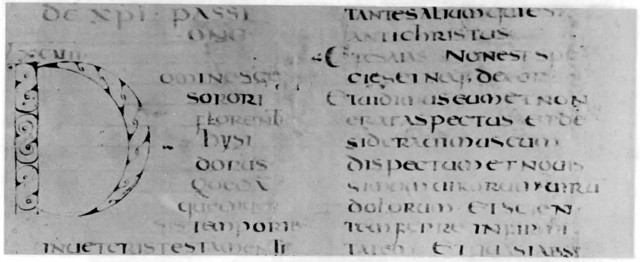 DE XPI PASSI
ONE
DOMINE SCE
SORORI
FLORENTI
HYSI
DORUS
QUEDA
QUE DIUER
SIS TEMPORIB
IN UETERIS TESTAMENTI
TANTES ALIUM QUI EST
ANTICHRISTUS
ESAIAS NON EST SPE
CIES EI NEQ· DECOR
ET UIDIMUS EUM ET NON
ERAT ASPECTUS ET DE
SIDERAUIMUS EUM
DISPECTUM ET NOUIS
SIMUM UIRORUM UIRU
DOLORUM ET SCIEN
TEM FERRE INFIRMI
TATEM ET QUASI ABS